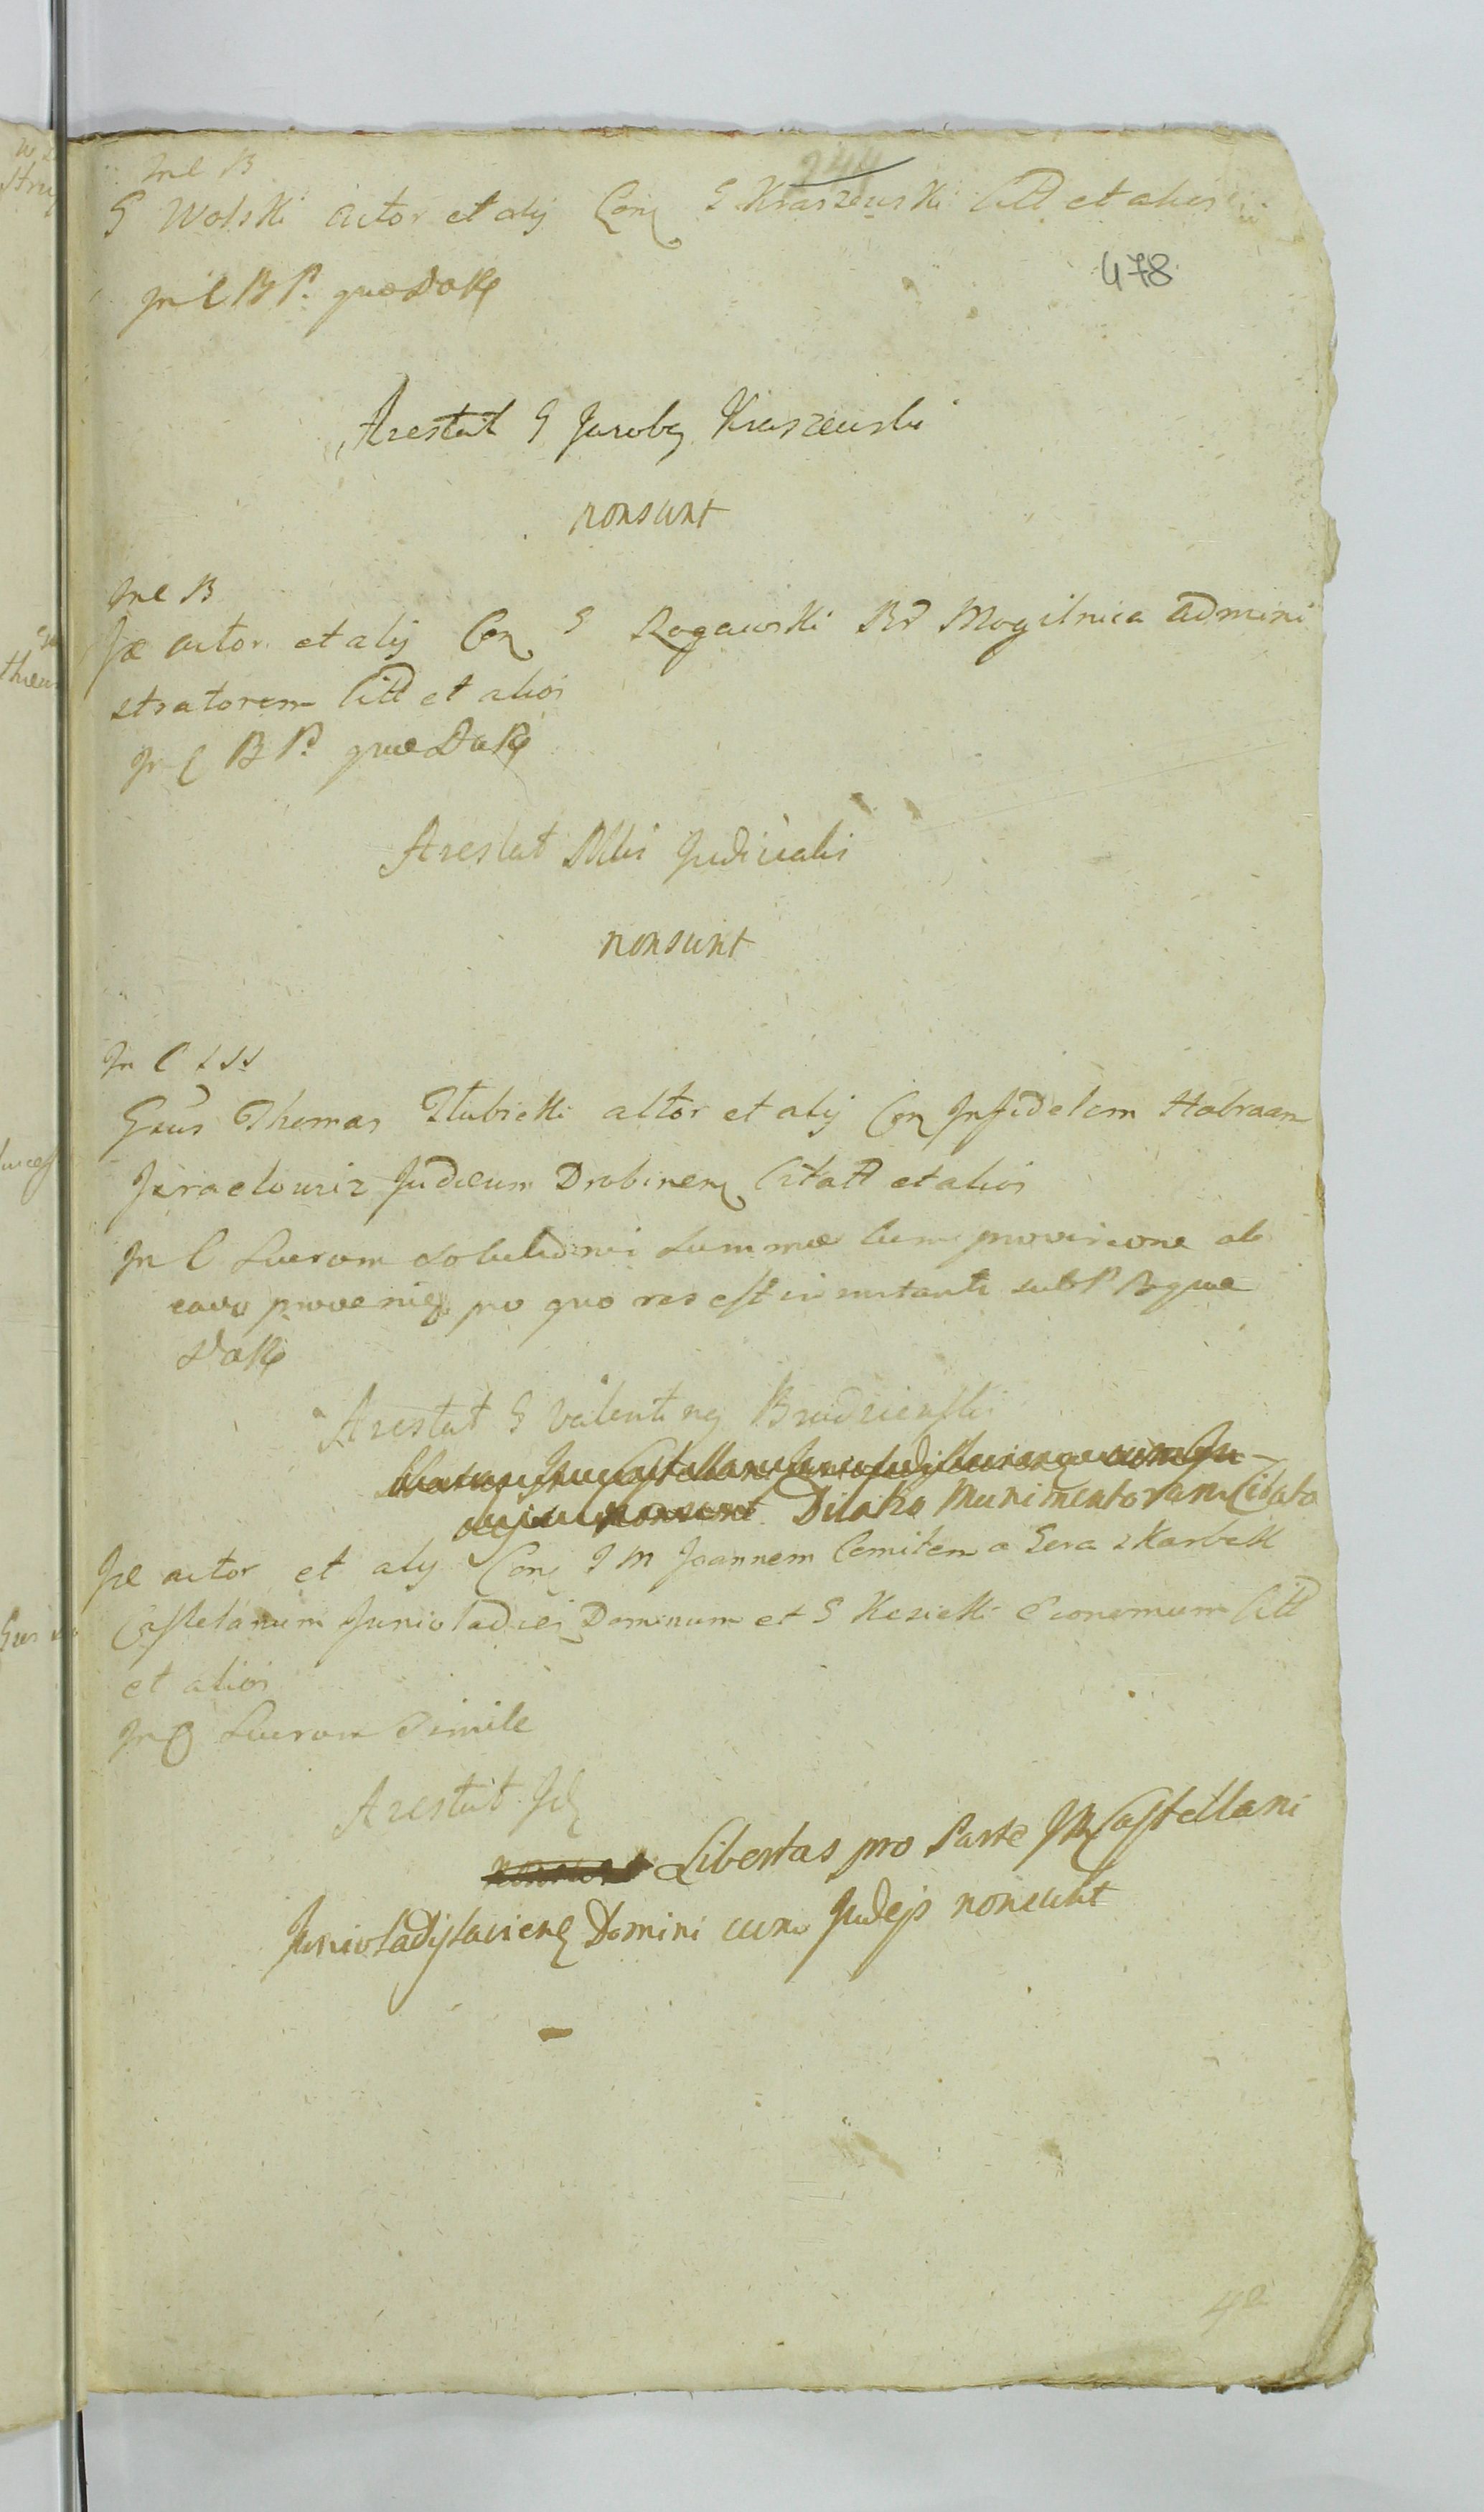 In C B
G Wolski actor et alij Con G Kraszewski Citt et alios
244
478
In C B P. quae Da
Arestat G Jacob Kraszewski
nonsunt
In C B
Jde actor et alij Con G Rogawski Bd Mogilnica admini
stratorem Citt et alios
In C B P. quae Da
Arestat Mlis Judicialis
nonsunt
In C
Gsus Thomas Hubicki actor et alij Con Infidelem Habraam
Israelowicz Judaeum Drobinen Citatt et alios
In C Lucrum Solutionis Summae cum provisione ab
eave provenien pro quo res est in instanti sub P B quae
Da
Arestat G Valenting Brudzienski
Dilatio Munimentorum Citato
Jde actor et alij Con I M Joannem Comitem a Gora Skarbek
Castelanum Juniwladien Dominum et G Kesicki Economum Citt
et alios
In C Lucrum Simile
Arestat Id
Libertas pro Parte JM Castellani
Juniwladislaviens Domini cum Judejs nonsunt
42